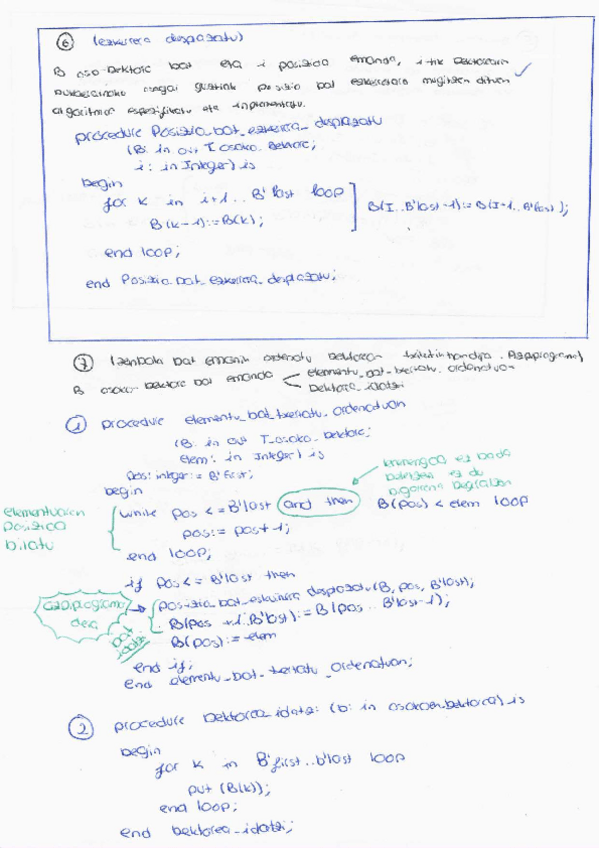 ⑥ (ezkerrera desplazatu)
B oso-bektore bat eta i posizioa emanda, i-tik bektorearen
bukaerarako osagai guztiak posizio bat ezkerretara mugitzen dituen
algoritmoa espezifikatu eta inplementatu.
procedure Posizio_bat_ezkerrera_desplazatu
(B: in out T_osoko_bektore;
i: in Integer) is
begin
for k in i+1..B'last loop
B(k-1):=B(k);
B(I..B'last-1):=B(I-1..B'last);
end loop;
end Posizio_bat_ezkerrera_desplazatu;
⑦ (zenbaki bat emanik ordenatu bektorean txertatu Azpiprograma)
B osoko-bektore bat emanda
elementu_bat_txertatu_ordenatuan
bektorea_idatzi
① procedure elementu_bat_txertatu_ordenatuan
(B: in out T_osoko_bektore;
elem: in Integer) is
pos: integer:= B'first;
begin
ez bada
betetzen ez du
bigarrena begiratzen
while pos <= B'last and then B(pos) < elem loop
pos:= pos+1;
end loop;
elementuaren
posizioa
bilatu
if pos <= B'last then
posizio_bat_eskuinera_desplazatu(B, pos, B'last);
B(pos+1..B'last):= B(pos..B'last-1);
B(pos):= elem
azpiprograma
deia
bat
idatzi
end if;
end elementu_bat_txertatu_ordenatuan;
② procedure bektorea_idatzi (b: in osokoen_bektorea) is
begin
for k in B'first..b'last loop
put (B(k));
end loop;
end bektorea_idatzi;